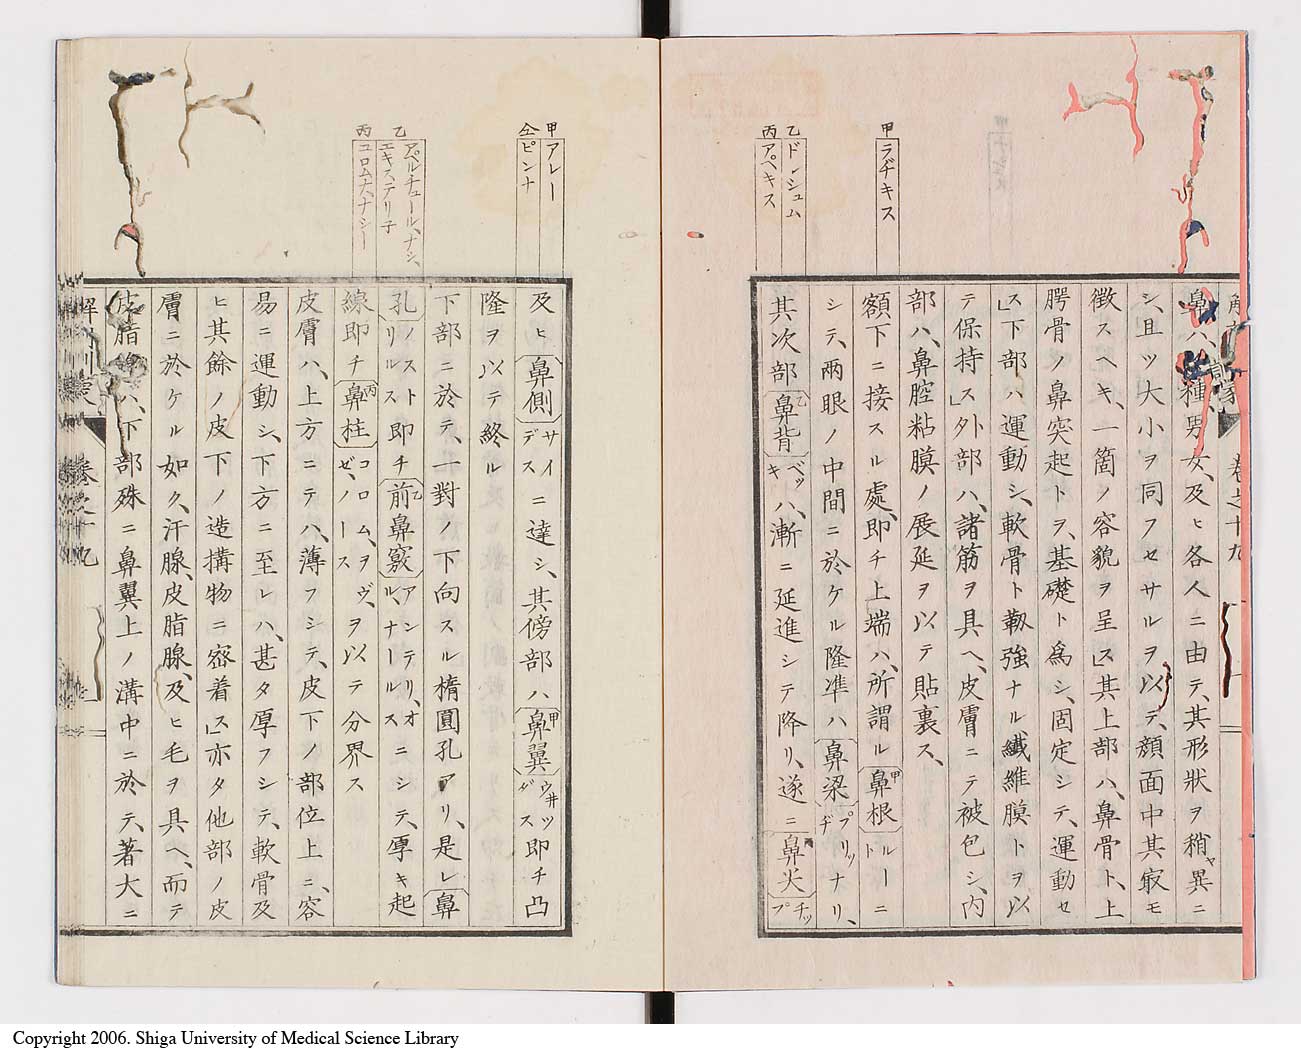 甲 ラヂキス
乙 ドルシュム
丙 アペキス
卷之十九
鼻ハ、種、男女、及ヒ各人ニ由テ、其形狀ヲ稍ヤ異ニ
シ、且ツ大小ヲ同フセサルヲ以テ、顔面中其㝡モ
徴スヘキ、一箇ノ容貌ヲ呈ス」其上部ハ、鼻骨ト、上
腭骨ノ鼻突起トヲ、基礎ト爲シ、固定シテ、運動セ
ス」下部ハ運動シ、軟骨ト靱強ナル纎維膜トヲ、以
テ保持ス」外部ハ、諸筋ヲ具ヘ、皮膚ニテ被包シ、内
部ハ、鼻腔粘膜ノ展延ヲ以テ貼裏ス、
額下ニ接スル處、即チ上端ハ、所謂ル鼻根甲ルート ニ
シテ、兩眼ノ中間ニ於ケル隆準ハ鼻梁ブリッヂ ナリ、
其次部鼻背乙ベッキ ハ、漸ニ延進シテ降リ、遂ニ鼻尖丙チップ
甲 アレー
仝 ピンナ
乙 アペルチュール、ナシ、
エキステリ子
丙 コロムナ、ナシー
及ヒ鼻側サイデス ニ達シ、其傍部ハ鼻翼甲ウ井ツグス 即チ凸
隆ヲ以テ終ル
下部ニ於テ、一對ノ下向スル楕圓孔アリ、是レ鼻
孔ノストリルス 即チ前鼻竅乙アンテリ、オル、ナールス ニシテ、厚キ起
線即チ鼻柱丙コロム、ヲヴ、ゼ、ノース ヲ以テ分界ス
皮膚ハ、上方ニテハ、薄フシテ、皮下ノ部位上ニ、容
易ニ運動シ、下方ニ至レハ、甚タ厚フシテ、軟骨及
ヒ其餘ノ皮下ノ造搆物ニ密着ス」亦タ他部ノ皮
膚ニ於ケル如ク、汗腺、皮脂腺、及ヒ毛ヲ具ヘ、而テ
皮脂腺ハ、下部殊ニ鼻翼上ノ溝中ニ於テ、著大ニ
卷之十九
Copyright 2006. Shiga University of Medical Science Library